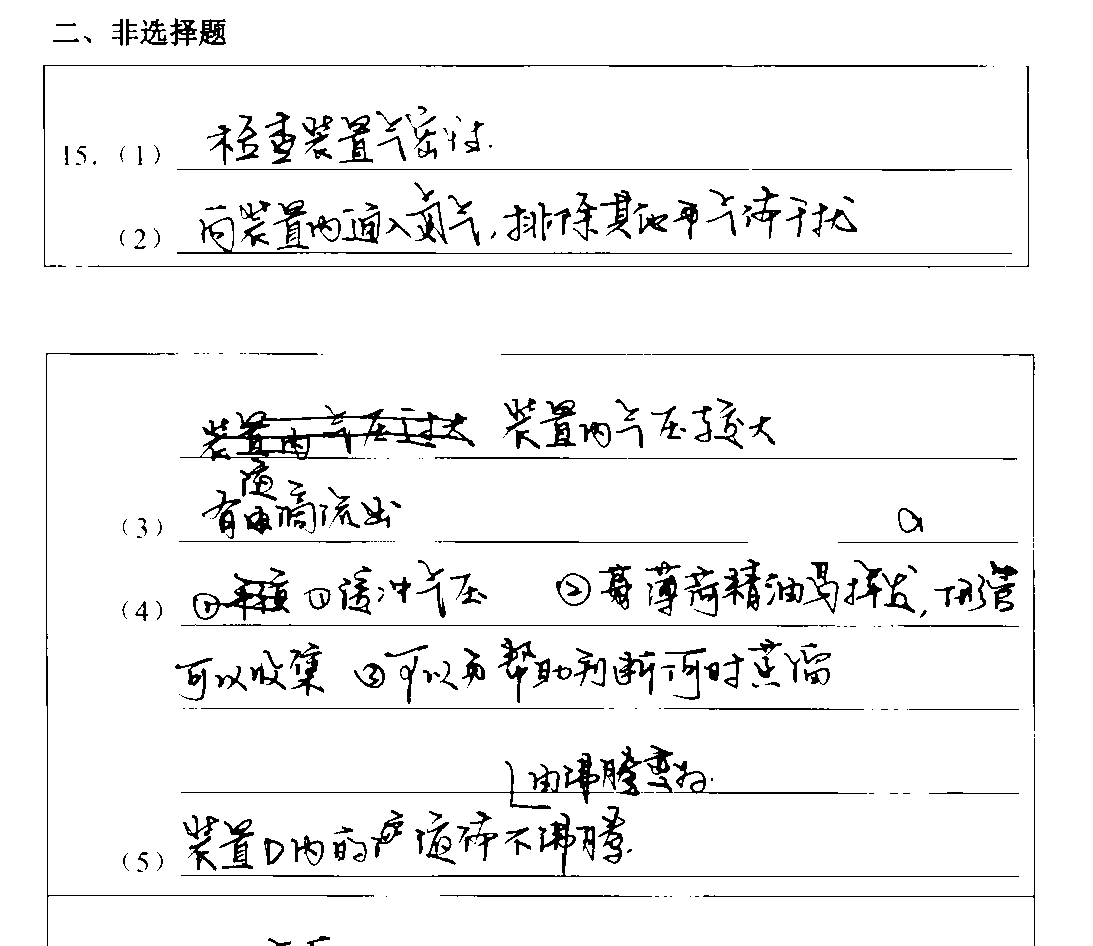 二、非选择题
15.（1）检查装置气密性.
（2）向装置内通入氮气,排除其他气体干扰
装置内气压过大 装置内气压较大
（3）有液滴流出 a
（4）①缓冲气压 ②薄荷精油易挥发,T形管
可以收集 ③可以帮助判断何时蒸馏
由沸腾变为
（5）装置D内的液体不沸腾.